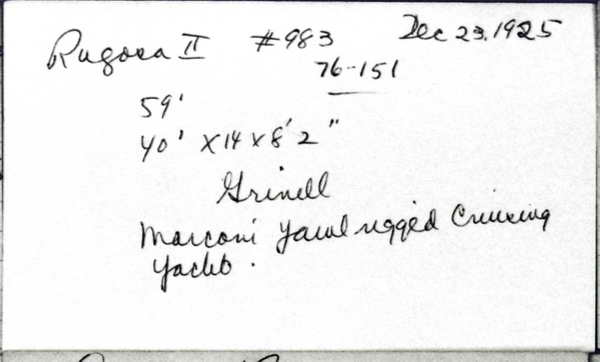 Rugosa II #983 Dec 23, 1925
76-151
59'
40' x 14 x 8' 2"
Grinell
Marconi Yawl rigged Cruising
Yacht.